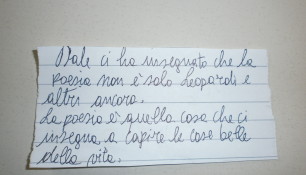 Vale ci ha insegnato che la
poesia non è solo Leopardi e
altri ancora.
La poesia è quella cosa che ci
insegna a capire le cose belle
della vita.